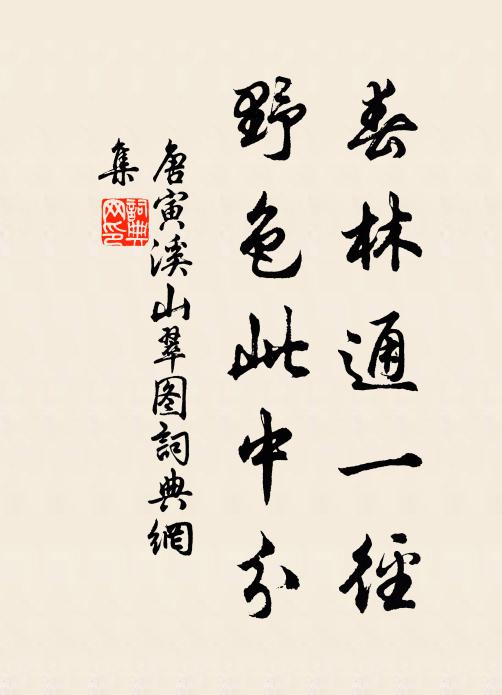 春林通一徑
野色此中分
唐寅溪山翠图詞典網
集
詞典
网印